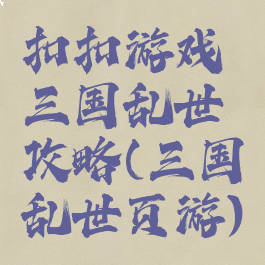 扣扣游戏
三国乱世
攻略(三国
乱世页游)